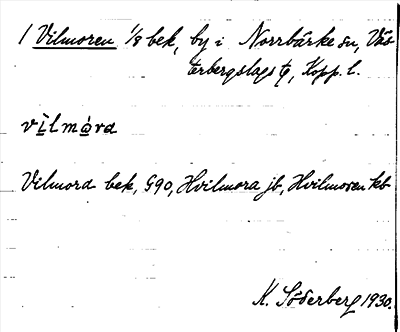 1 Vilmoren 1/8 bek, by i Norrbärke sn, Väs
terbergslags tg, Kopp. l.
vilmard
Vilmord bek, 590, Hvilmora jb, Hvilmoren kb
K. Söderberg 1930.